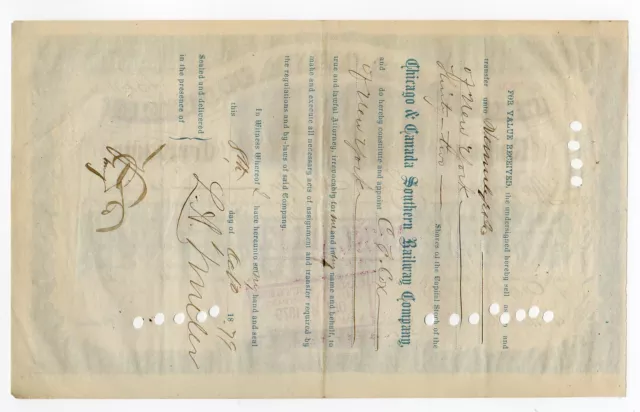 FOR VALUE RECEIVED, the undersigned hereby sell and
transfer unto
of New York
Thirty-two Shares of the Capital Stock of the
Chicago & Canada Southern Railway Company,
and do hereby constitute and appoint C. F. Cox
of New York
true and lawful Attorney, irrevocably for me and in my name and behalf, to
make and execute all necessary acts of assignment and transfer required by
the regulations and by-laws of said Company.
In Witness Whereof I have hereunto set my hand and seal
this 8th day of 1879
Sealed and delivered
in the presence of